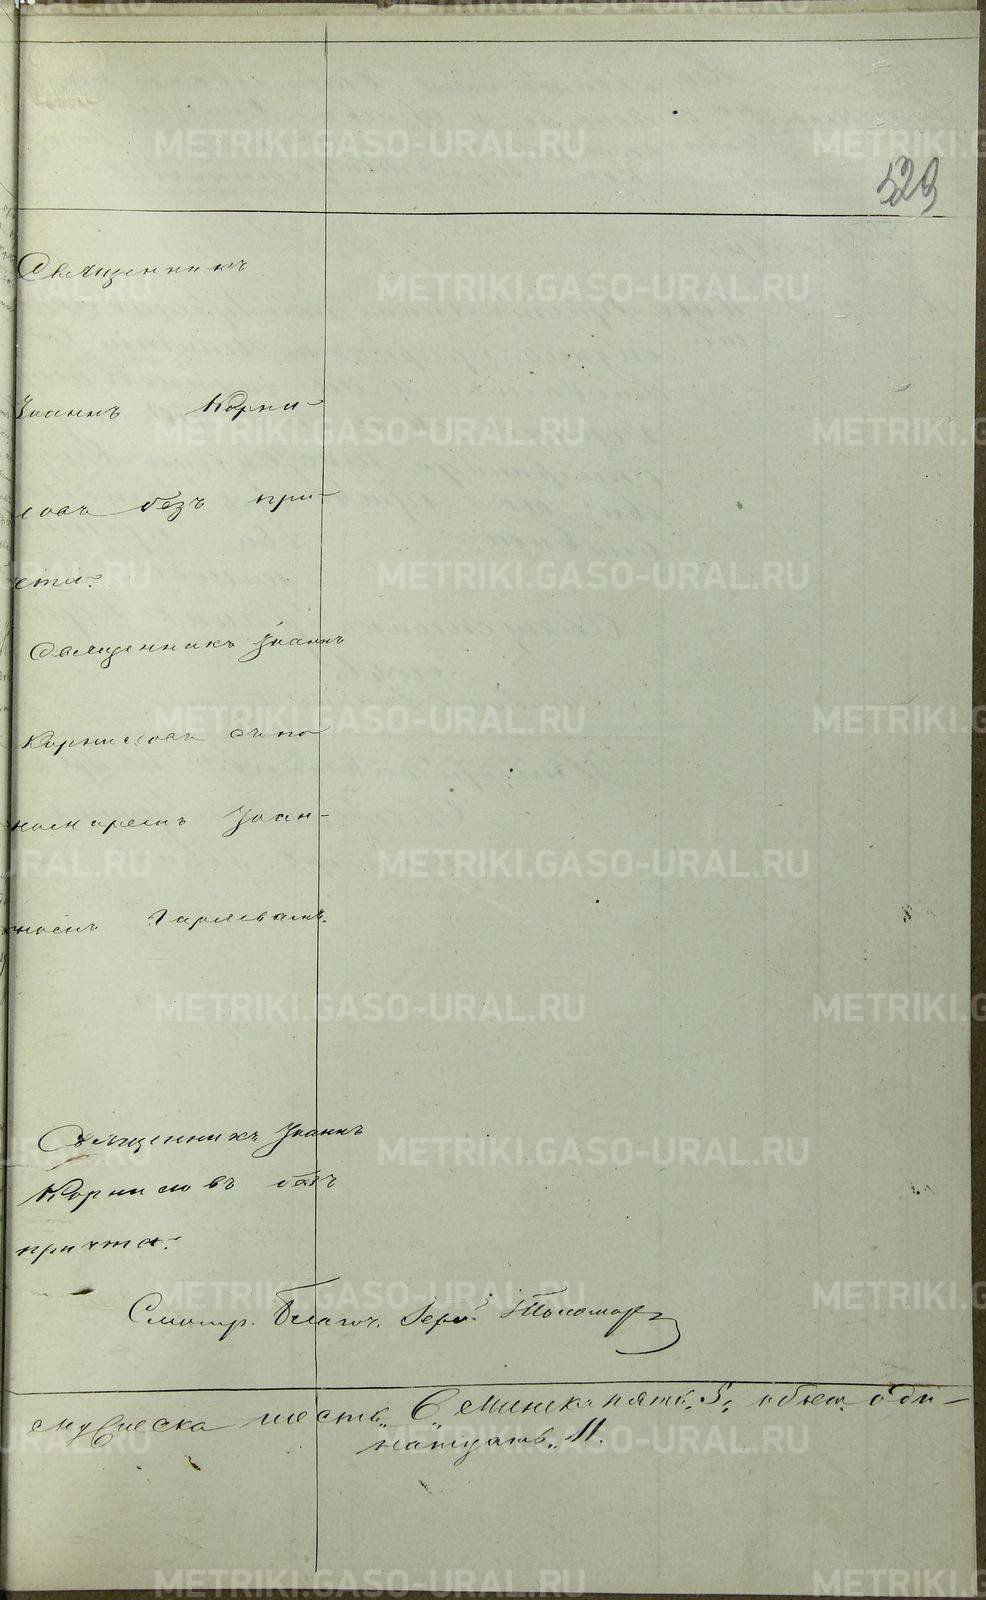 529
Священникъ
Іоаннъ Корни-
ловъ безъ при-
чта.
Священникъ Іоаннъ
Корниловъ съ по
номаремъ Іоан-
номъ
Священникъ Іоаннъ
Корниловъ безъ
причта.
Смотр. Благоч. Іерей
мужеска шесть 6, женска пять, 5, обоего оди-
надцать 11.
METRIKI.GASO-URAL.RU